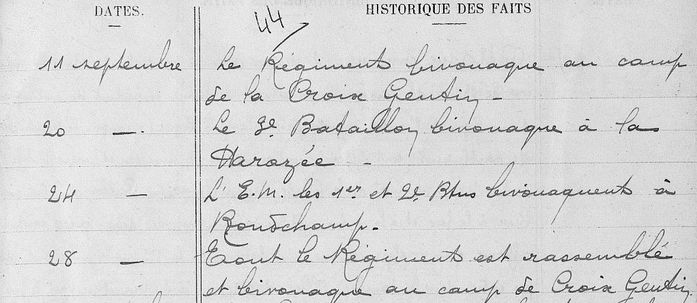 DATES.
HISTORIQUE DES FAITS
44
11 septembre Le Régiment bivouaque au camp
de la Croix Gentin -
20 — Le 3e Bataillon bivouaque à la
Harazée -
24 — L'E.M. les 1er et 2e Btns bivouaquent à
Rondchamp.
28 — Tout le Régiment est rassemblé
et bivouaque au camp de Croix Gentin